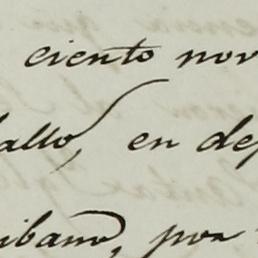 ciento nov
allo, en de
ibano, por